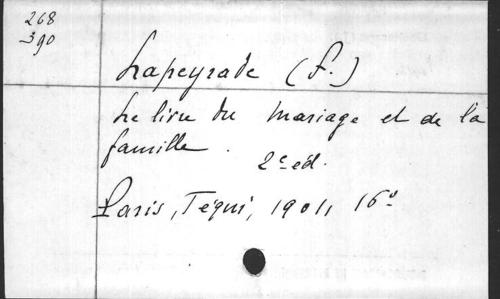 268
390
Lapeyrade (F.)
Le livre du mariage et de la
famille.
2e éd.
Paris, Tequi, 1901, 16°